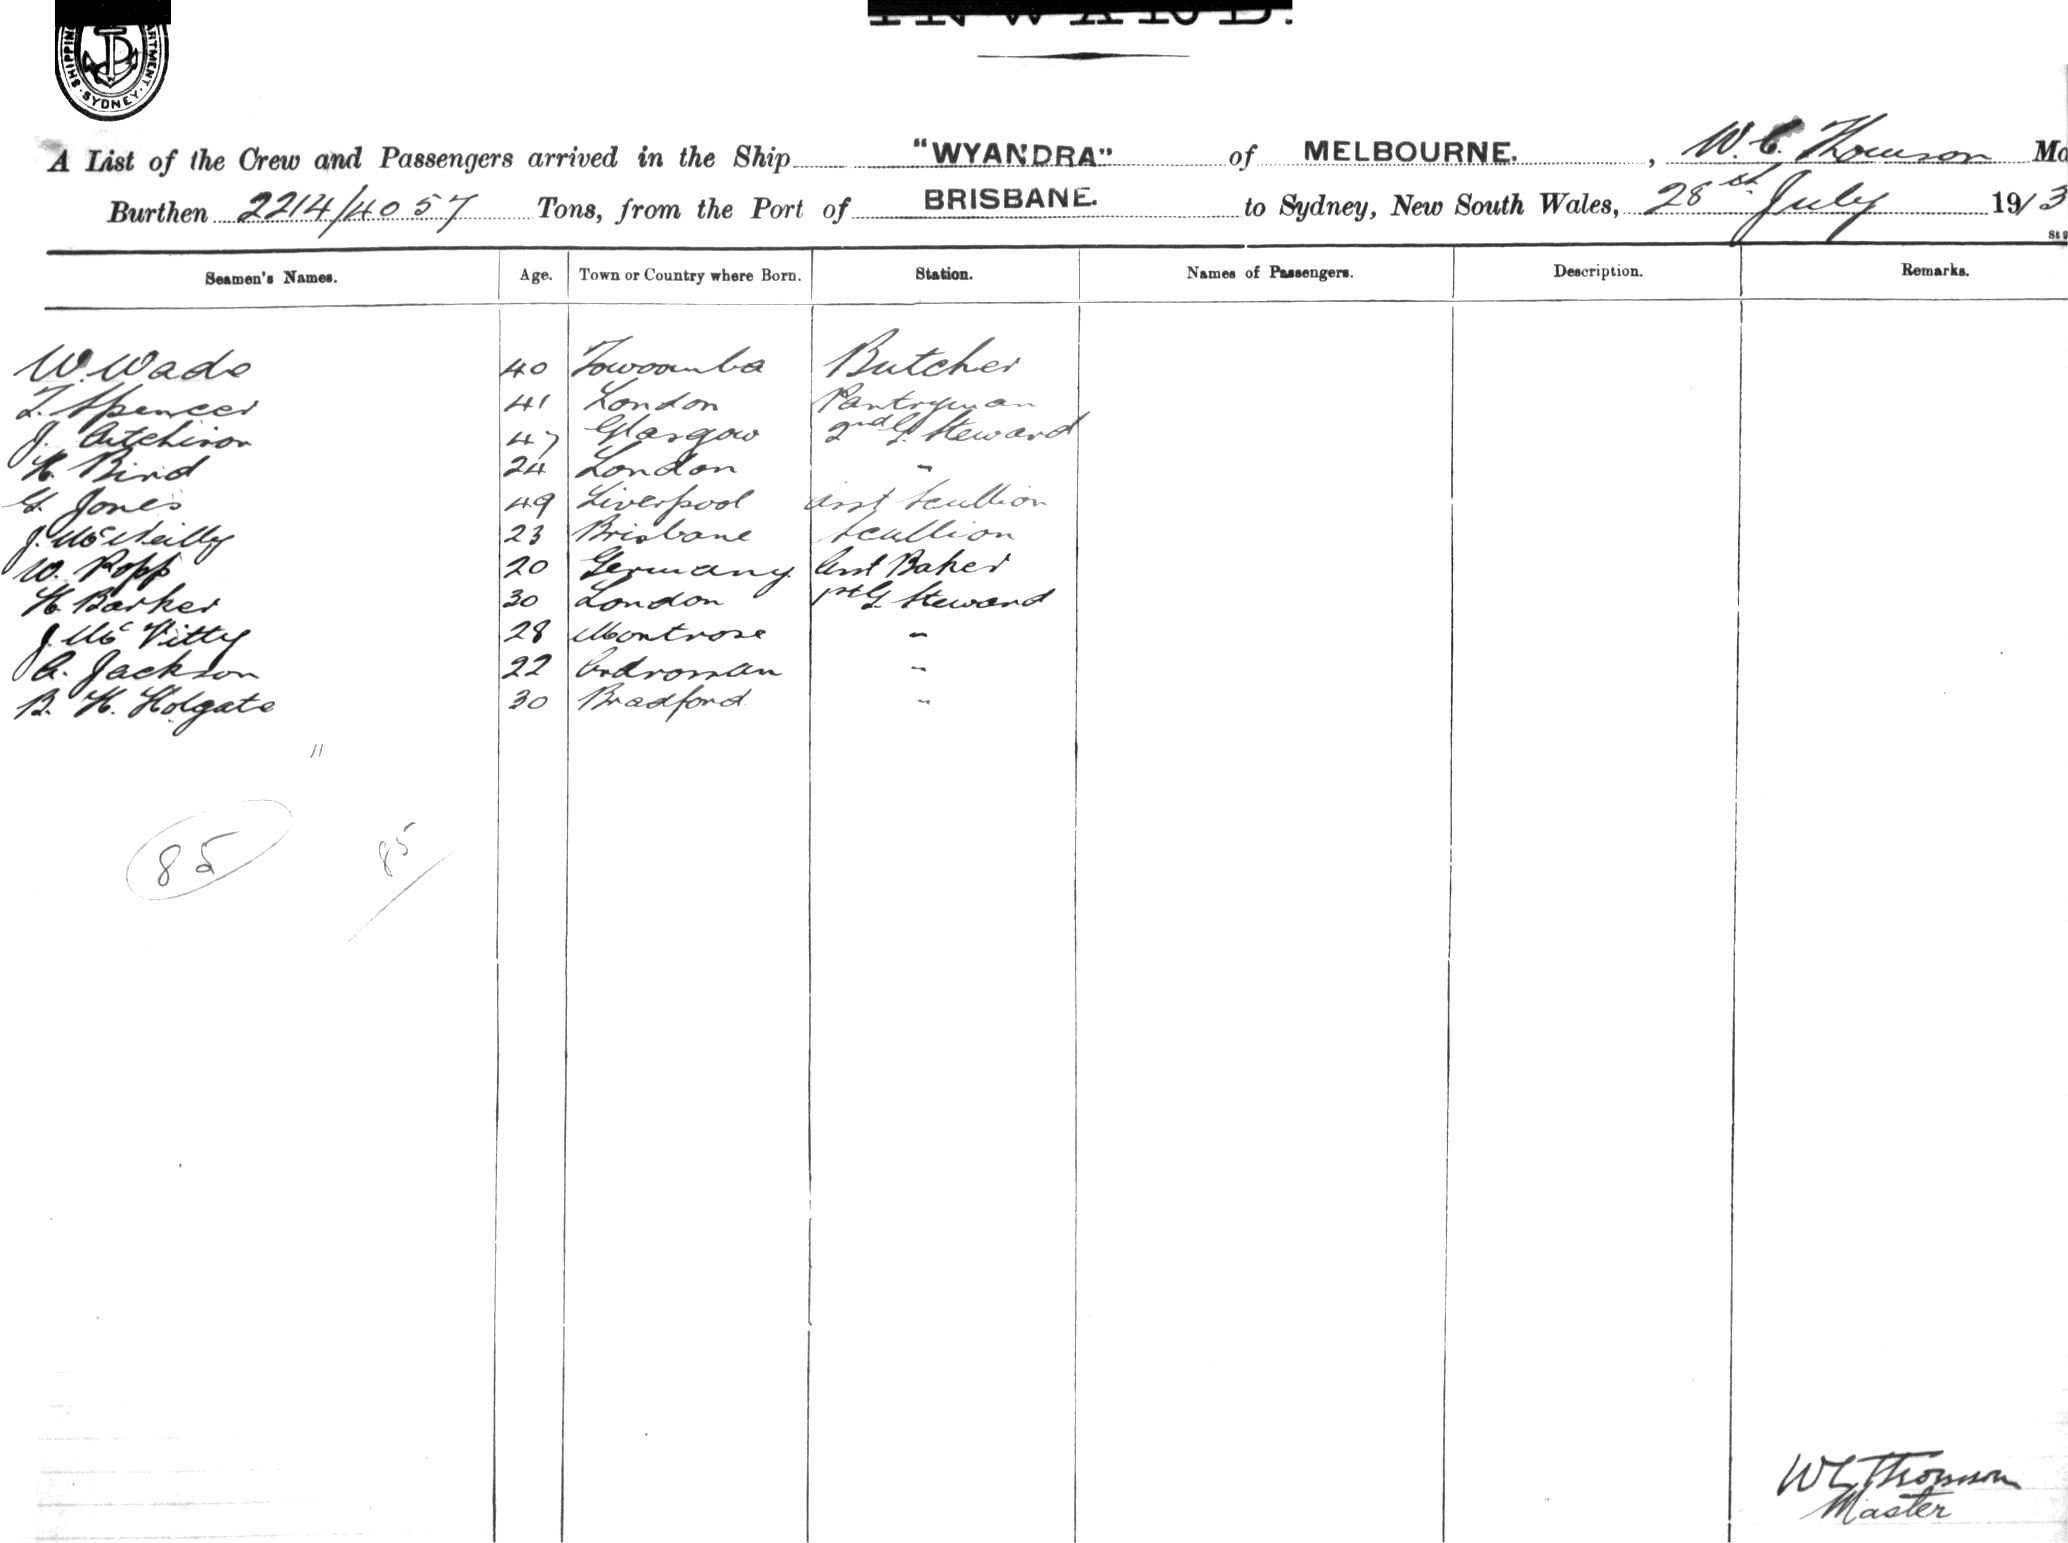 INWARD.
SHIPPING SYDNEY
A List of the Crew and Passengers arrived in the Ship "WYANDRA" of MELBOURNE. , W. C. Thomson Ma
Burthen 2214/4057 Tons, from the Port of BRISBANE. to Sydney, New South Wales, 28st July 1913
Seamen's Names. Age. Town or Country where Born. Station. Names of Passengers. Description. Remarks.
W. Wade 40 Towoomba Butcher
T. Spencer 41 London Pantryman
J. Aitchison 47 Glasgow 2nd G. Steward
H. Bird 24 London "
G. Jones 49 Liverpool Asst Scullion
J. McNeilly 23 Brisbane Scullion
W. Popp 20 Germany Asst Baker
H. Barker 30 London 1st G. Steward
J. McVitty 28 Montrose "
A. Jackson 22 Ardrossan "
B. H. Holgate 30 Bradford "
11
85 85
W C Thomson
Master